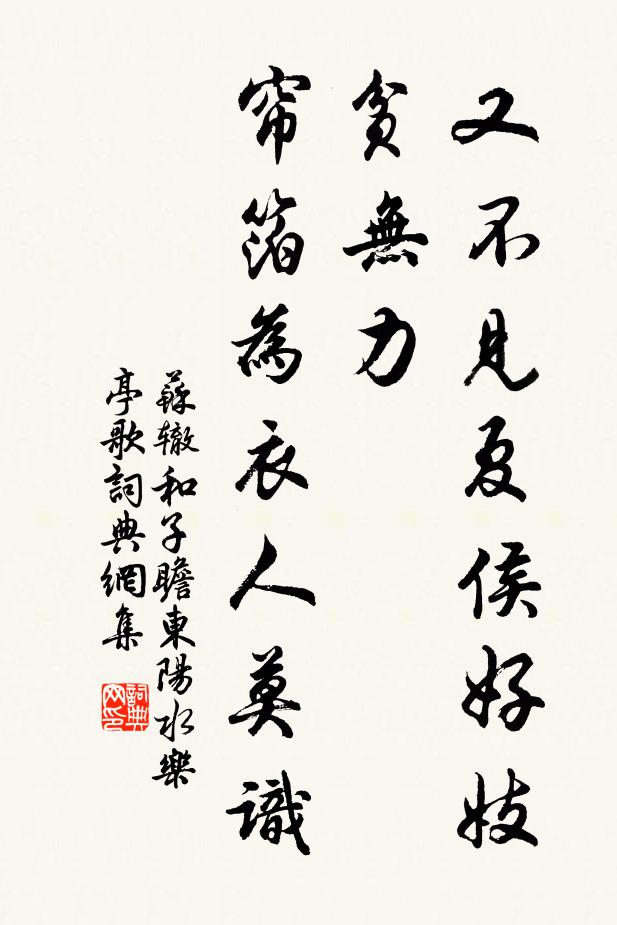 又不見夏侯好妓
貧無力
帘箔為衣人莫識
蘇辙和子瞻東陽水樂
亭歌詞典網集
詞典
网印